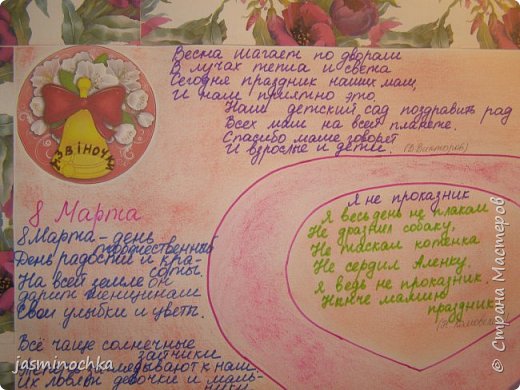 Весна шагает по дворам
В лучах тепла и света
Сегодня праздник наших мам,
И нам приятно это.
Наш детский сад поздравить рад
Всех мам на всей планете.
Спасибо маме говорят
И взрослые и дети.
(В. Викторов)
Дзвіночки
8 Марта
8 Марта – день
торжественный
День радости и кра-
соты.
На всей земле он
дарит женщинам
Свои улыбки и цветы.
Всё чаще солнечные
зайчики
заглядывают к нам.
Их ловят девочки и маль-
чики
Я не проказник
Я весь день не плакал
Не дразнил собаку,
Не таскал котенка
Не сердил Аленку.
Я ведь не проказник
Нынче мамин
праздник
© Страна Мастеров
jasminochka